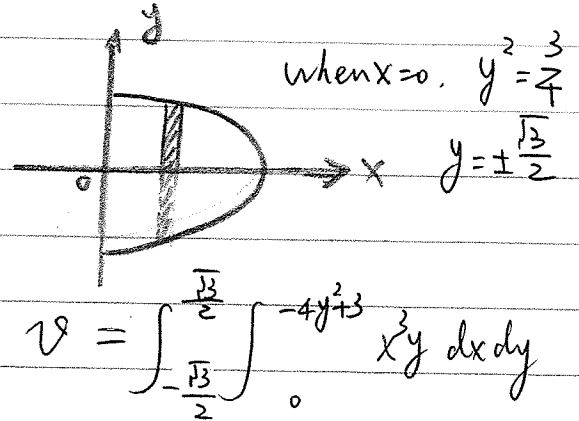 y
when x=0. y²=3/4
0 x y=±√3/2
v = ∫_{-√3/2}^{√3/2} ∫_0^{-4y²+3} x³y dx dy